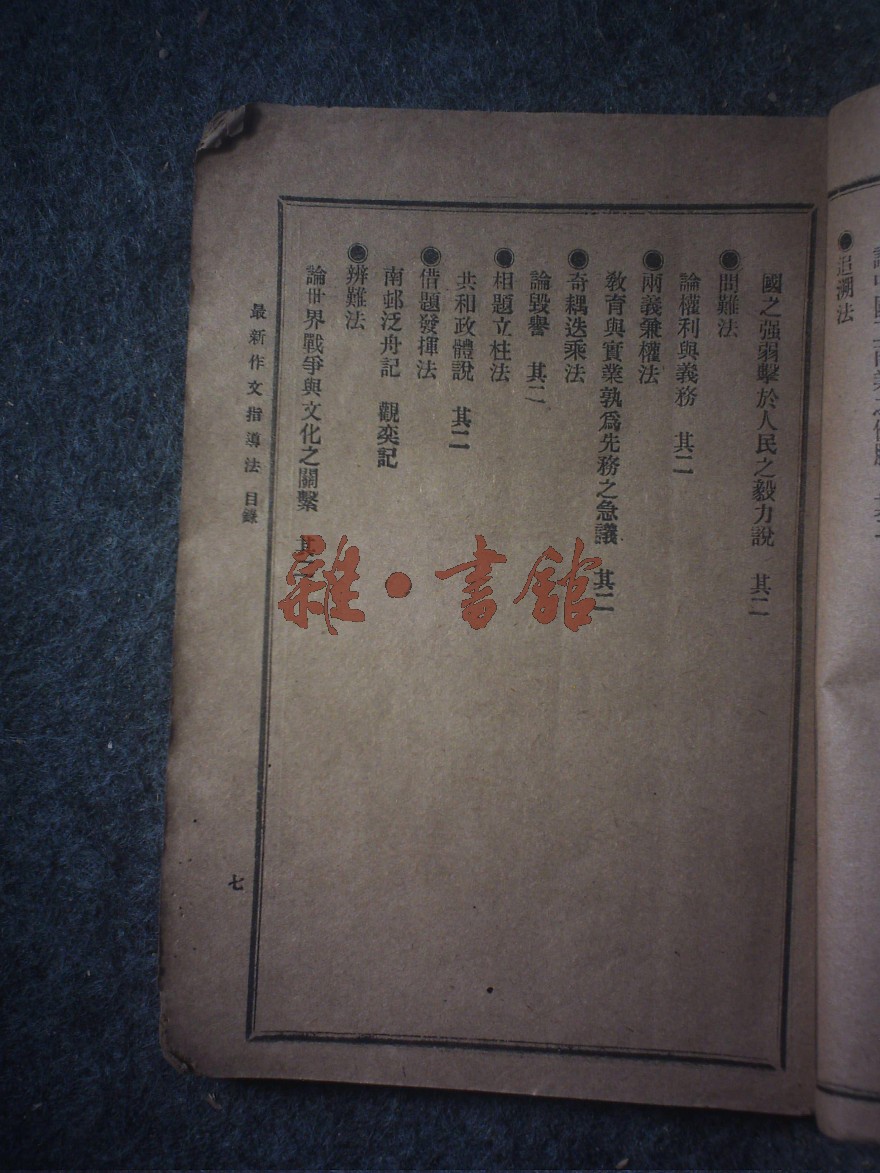 ●追溯法
國之强弱擊於人民之毅力說　其二
●問難法
論權利與義務　其二
●兩義兼權法
敎育與實業孰爲先務之急議　其二
●奇耦迭乘法
論毀譽　其二
●相題立柱法
共和政體說　其二
●借題發揮法
南邨泛舟記　觀奕記
●辨難法
論世界戰爭與文化之關繫　其二
最新作文指導法　目錄
七
雜·書館